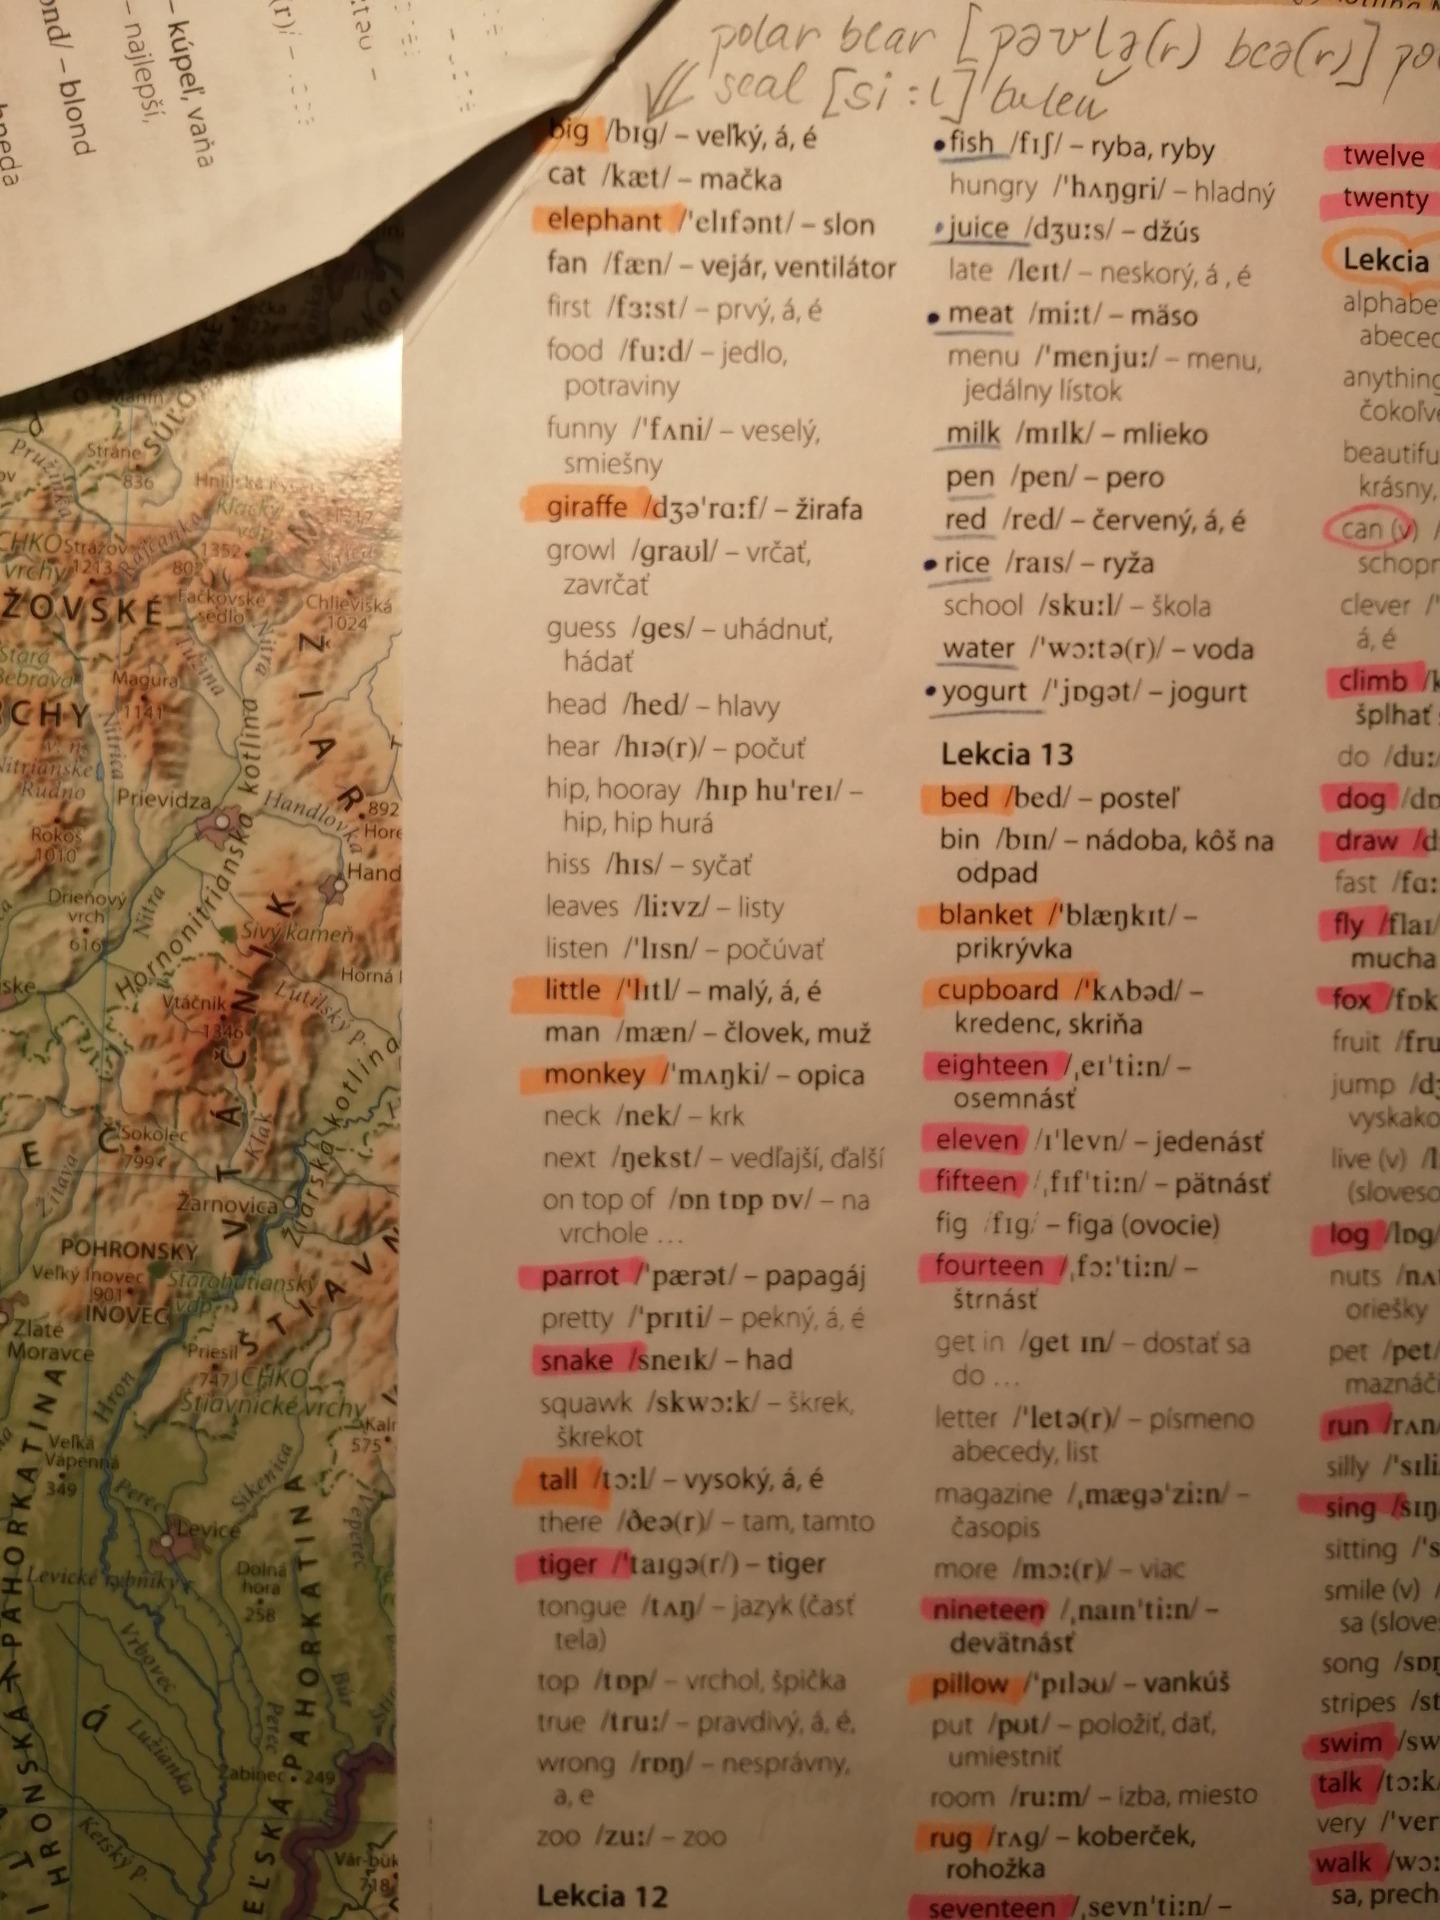 polar bear [pəʊlə(r) beə(r)]
seal [si:l] tuleň
big /bɪg/ – veľký, á, é
cat /kæt/ – mačka
elephant /'elɪfənt/ – slon
fan /fæn/ – vejár, ventilátor
first /fɜːst/ – prvý, á, é
food /fuːd/ – jedlo,
potraviny
funny /'fʌni/ – veselý,
smiešny
giraffe /dʒə'rɑːf/ – žirafa
growl /graʊl/ – vrčať,
zavrčať
guess /ges/ – uhádnuť,
hádať
head /hed/ – hlavy
hear /hɪə(r)/ – počuť
hip, hooray /hɪp hu'reɪ/ –
hip, hip hurá
hiss /hɪs/ – syčať
leaves /liːvz/ – listy
listen /'lɪsn/ – počúvať
little /'lɪtl/ – malý, á, é
man /mæn/ – človek, muž
monkey /'mʌŋki/ – opica
neck /nek/ – krk
next /ŋekst/ – vedľajší, ďalší
on top of /ɒn tɒp ɒv/ – na
vrchole ...
parrot /'pærət/ – papagáj
pretty /'prɪti/ – pekný, á, é
snake /sneɪk/ – had
squawk /skwɔːk/ – škrek,
škrekot
tall /tɔːl/ – vysoký, á, é
there /ðeə(r)/ – tam, tamto
tiger /'taɪgə(r/) – tiger
tongue /tʌŋ/ – jazyk (časť
tela)
top /tɒp/ – vrchol, špička
true /truː/ – pravdivý, á, é,
wrong /rɒŋ/ – nesprávny,
a, e
zoo /zuː/ – zoo
Lekcia 12
fish /fɪʃ/ – ryba, ryby
hungry /'hʌŋgri/ – hladný
juice /dʒuːs/ – džús
late /leɪt/ – neskorý, á , é
meat /miːt/ – mäso
menu /'menjuː/ – menu,
jedálny lístok
milk /mɪlk/ – mlieko
pen /pen/ – pero
red /red/ – červený, á, é
rice /raɪs/ – ryža
school /skuːl/ – škola
water /'wɔːtə(r)/ – voda
yogurt /'jɒgət/ – jogurt
Lekcia 13
bed /bed/ – posteľ
bin /bɪn/ – nádoba, kôš na
odpad
blanket /'blæŋkɪt/ –
prikrývka
cupboard /'kʌbəd/ –
kredenc, skriňa
eighteen /ˌeɪ'tiːn/ –
osemnásť
eleven /ɪ'levn/ – jedenásť
fifteen /ˌfɪf'tiːn/ – pätnásť
fig /fɪg/ – figa (ovocie)
fourteen /ˌfɔː'tiːn/ –
štrnásť
get in /get ɪn/ – dostať sa
do ...
letter /'letə(r)/ – písmeno
abecedy, list
magazine /ˌmægə'ziːn/ –
časopis
more /mɔː(r)/ – viac
nineteen /ˌnaɪn'tiːn/ –
devätnásť
pillow /'pɪləʊ/ – vankúš
put /pʊt/ – položiť, dať,
umiestniť
room /ruːm/ – izba, miesto
rug /rʌg/ – koberček,
rohožka
seventeen /ˌsevn'tiːn/ –
twelve
twenty
Lekcia
can (v)
schopn
clever
á, é
climb
šplhať
do /duː/
dog
draw
fast
fly /flaɪ/
mucha
fox
fruit
jump
live (v)
log /lɒg/
nuts
oriešky
pet /pet/
run /rʌn/
silly
sing
sitting
smile (v)
song
stripes
swim
talk
very
walk
sa,
– kúpeľ, vaňa
– najlepší,
– blond
Stráne
836
Kľacky
vdp.
1352
CHKO Strážov
vrchy 1213
Fačkovské
sedlo
Chlieviská
1024
Magura
1141
Nitrica
Prievidza
Handlovka
892
Rokoš
1010
Drieňový
vrch
616
Nitra
Hornonitrianska kotlina
Sivý kameň
Vtáčnik
1346
VTÁČNIK
Kľak
Sokolec
799
Žitava
Žarnovica
POHRONSKÝ
INOVEC
Veľký Inovec
901
Zlaté
Moravce
Priesil
747
CHKO
Štiavnické vrchy
Hron
Veľká
Vápenná
349
Perec
Sikenica
Levice
Levické rybníky
Dolná
hora
258
Vrbovec
Lužianka
Zabinec 249
Búr
Perec
Ketský p.